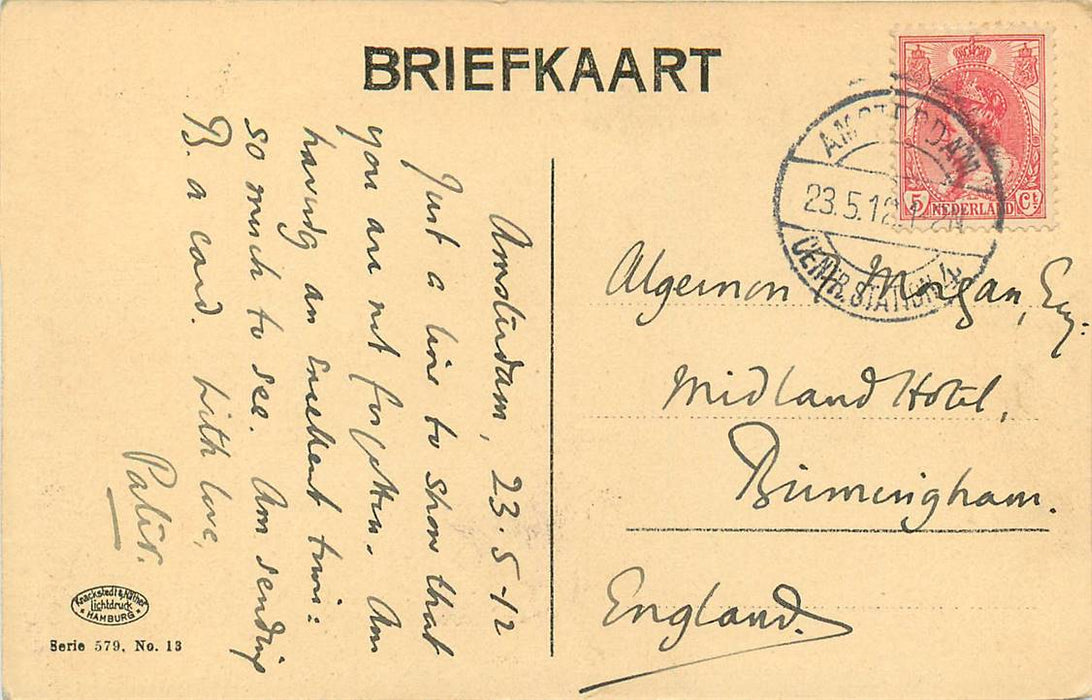 BRIEFKAART
AMSTERDAM
23.5.12 1-2N
CENTR. STATION 4
5 NEDERLAND Ct
Amsterdam, 23-5-12
Just a line to show that
you are not forgotten. Am
having an excellent time:
so much to see. Am sending
B. a card. With love,
Pater.
Algernon Morgan, Esq:
Midland Hotel,
Birmingham.
England.
Knackstedt & Näther
Lichtdruck
HAMBURG
Serie 579, No. 13